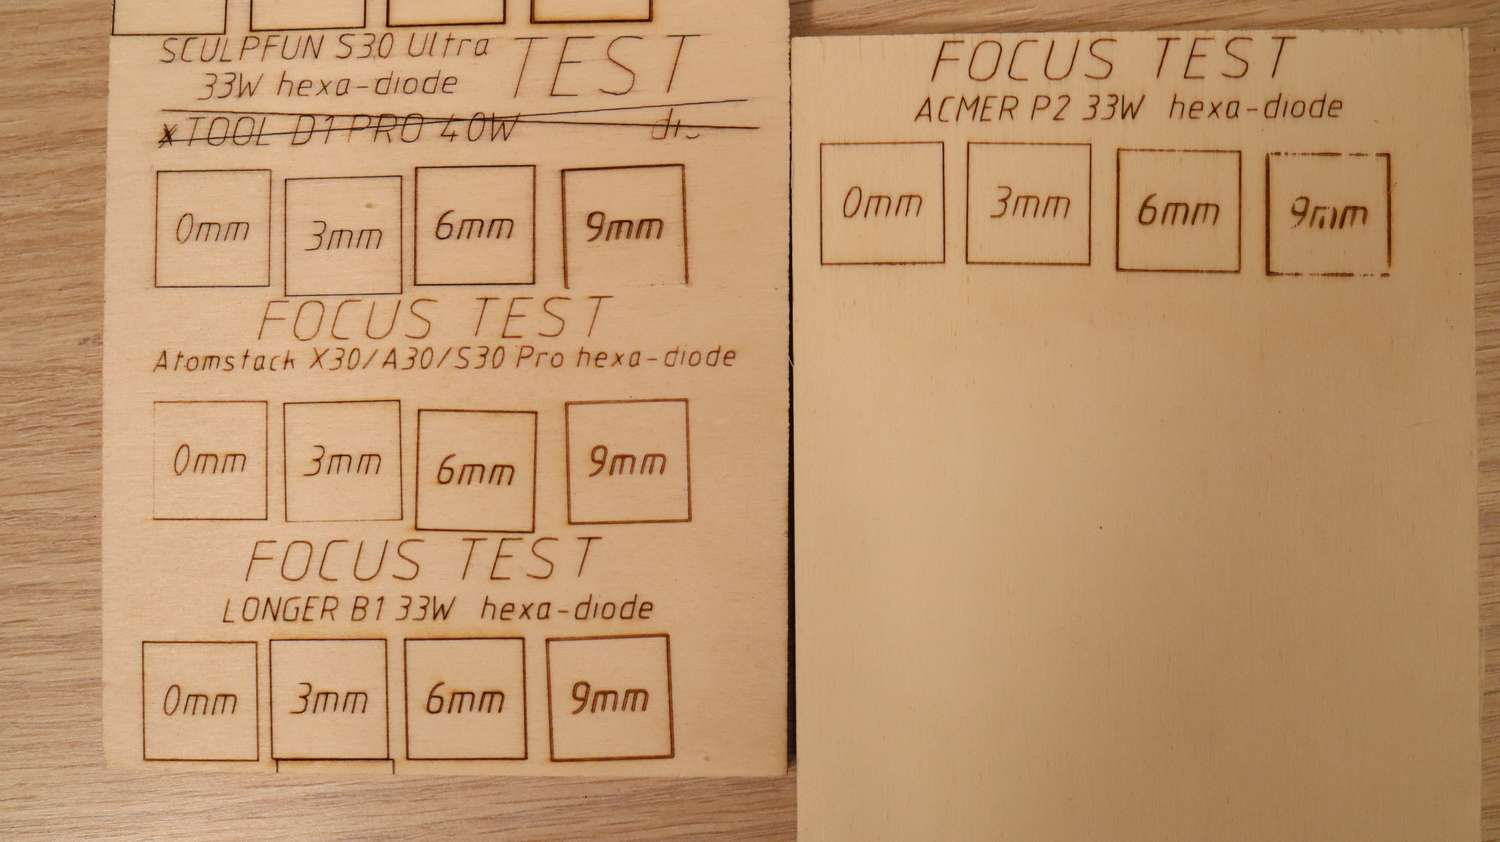 SCULPFUN S30 Ultra TEST
33W hexa-diode
xTOOL D1 PRO 40W
0mm 3mm 6mm 9mm
FOCUS TEST
Atomstack X30/A30/S30 Pro hexa-diode
0mm 3mm 6mm 9mm
FOCUS TEST
LONGER B1 33W hexa-diode
0mm 3mm 6mm 9mm
FOCUS TEST
ACMER P2 33W hexa-diode
0mm 3mm 6mm 9mm